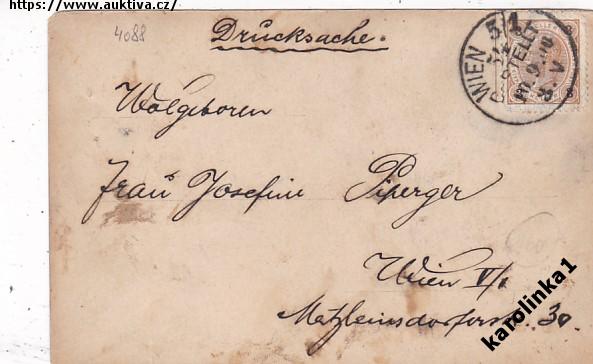 https://www.auktiva.cz/
4088
Drucksache.
WIEN 5/1
Wolgeboren
Frau Josefine Piperger
Wien V/1
Matzleinsdorferstr. 30.
karolinka1